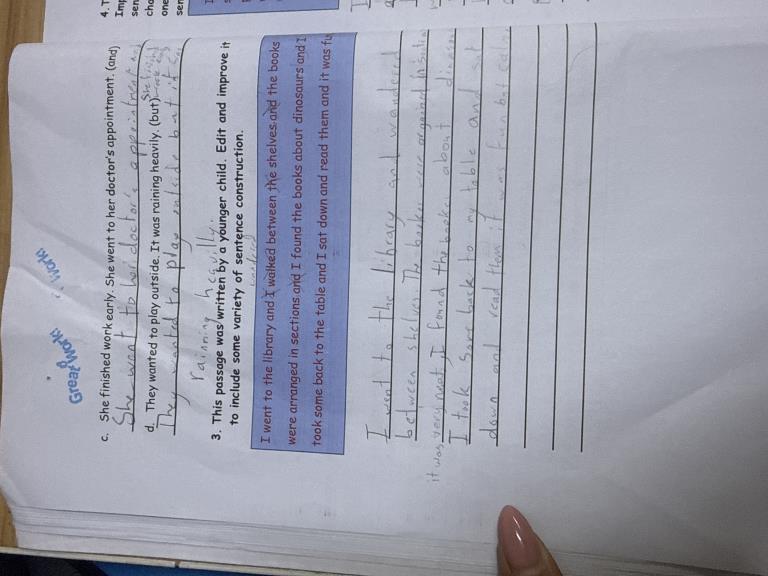 Great work!
work!
c. She finished work early. She went to her doctor's appointment. (and)
She went to her doctor's appointment and
she finish work early
d. They wanted to play outside. It was raining heavily. (but)
They wanted to play outside but it
rainning
3. This passage was written by a younger child. Edit and improve it
to include some variety of sentence construction.
wandered
I went to the library and I walked between the shelves and the books
were arranged in sections and I found the books about dinosaurs and I
took some back to the table and I sat down and read them and it was fu
I went to the library and wandered
between shelves. The books were organised in
it was very neat, I found the books about
I took some back to my table and sat
down and read them it was fun but
4. T
Imp
sen
cho
one
sen